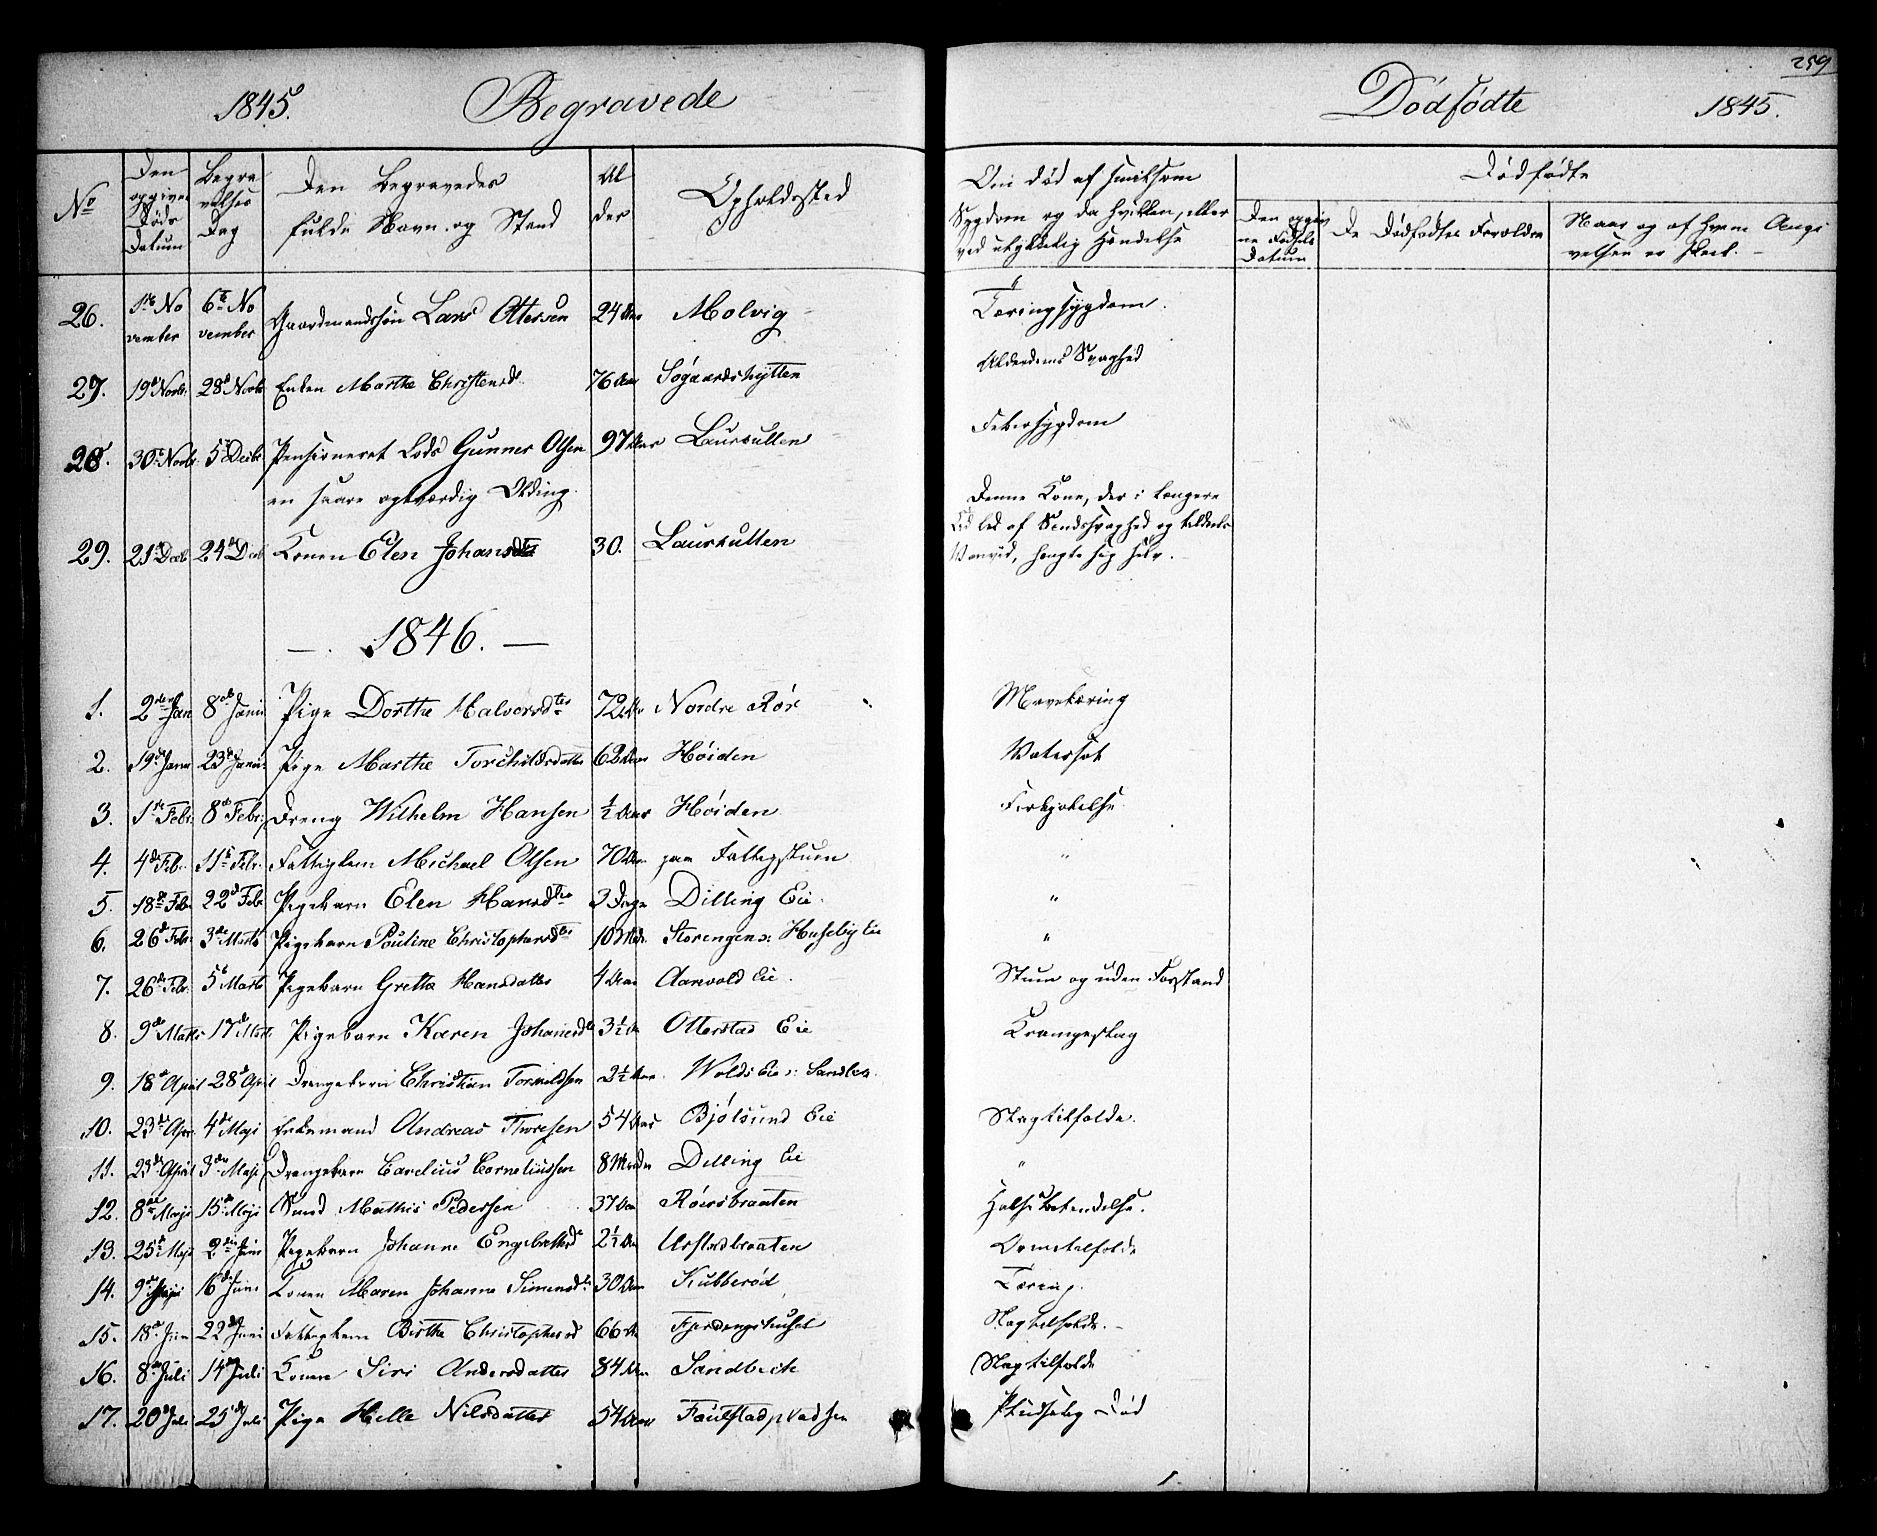 259
1845. Begravede
Dödfödte 1845.
No
Den opgivne Döds Datum
Begravelses Dag
Den Begravedes fulde Navn og Stand
Alder
Opholdssted
Om död af smitsom Sygdom og da hvilken, eller ved ulykkelig Hændelse
Dödfödte
Den opgivne Födsels Datum
De Dödfödtes Forældre
Naar og af hvem Angivelsen er skeet.
26. 1ste November 6te November Gaardmandssön Lars Ottersen 24 Aar Molvig Tæringssygdom.
27. 19d Novbr 28d Novbr Enken Marthe Christensd. 76 Aar Sögaardshytten Alderdoms Svaghed
28. 30t Novbr. 5t Decbr. Pensioneret Lods Gunner Olsen 97 Aar Laurkullen Febersygdom
en saare agtværdig Olding.
29. 21de Decb 24de Decb Konen Elen Johansdtr 30. Laurkullen Denne Kone, der i længere Tid led af Sindssvaghed og tildeels Vanvid, hængte sig selv.
— . 1846. —
1. 2den Jan 8de Janu Pige Dorthe Halvorsdtr 72 Aar Nordre Rör Mavetæring
2. 19d Janu 23d Janu Pige Marthe Torchildsdatter 62 Aar Höiden Vatersot
3. 1ste Febr. 8de Febr. Dreng Wilhelm Hansen ½ Aar Höiden Forkjølelse.
4. 4de Feb. 11te Febr. Fattiglem Michael Olsen 70 Aar paa Fattigstuen "
5. 18de Feb. 22d Feb Pigebarn Elen Hansdtr 3 Dage Dilling Eie. "
6. 26d Febr. 3die Marts Pigebarn Pauline Christophersdtr 10 Mdr. Storengen s: Huseby Eie "
7. 26de Febr. 5te Marts Pigebarn Grethe Hansdatter 4 Aar Aarvold Eie. Stum og uden Forstand
8. 9de Marts 17de Marts Pigebarn Karen Johansdtr 3½ Aar Otterstad Eie Krampeslag
9. 18de April 28de April Drengebarn Christian 2½ Aar. Wolds Eie
10. 23de Apr. 4de Maji Enkemand Andreas Thoresen 54 Aar Bjölsund Eie Slagtilfælde.
11. 23de April 3die Maji Drengebarn Carelius Corneliussen 8 Maader Dilling Eie "
12. 8de Maji 15de Maji Svend Mathis Pedersen 37 Aar Röersbraaten Halsbetændelse.
13. 25de Maji 2den Juni Pigebarn Johanne Engebretsd 2½ Aar
14. 9de Juni 16de Juni Konen Maren Johanne Simensdtr 30 Aar Kubberöd Tæring.
15. 18de Juni 22de Juni Fattiglem Birthe Christophersd 66 Aar Fjerdingshuset Slagtilfælde. –
16. 8de Juli 14de Juli Konen Siri Andersdatter 84 Aar Sandbeck Slagtilfælde
17. 20de Juli 25de Juli Pige Helle Nilsdatter 54 Aar Pludselig Död